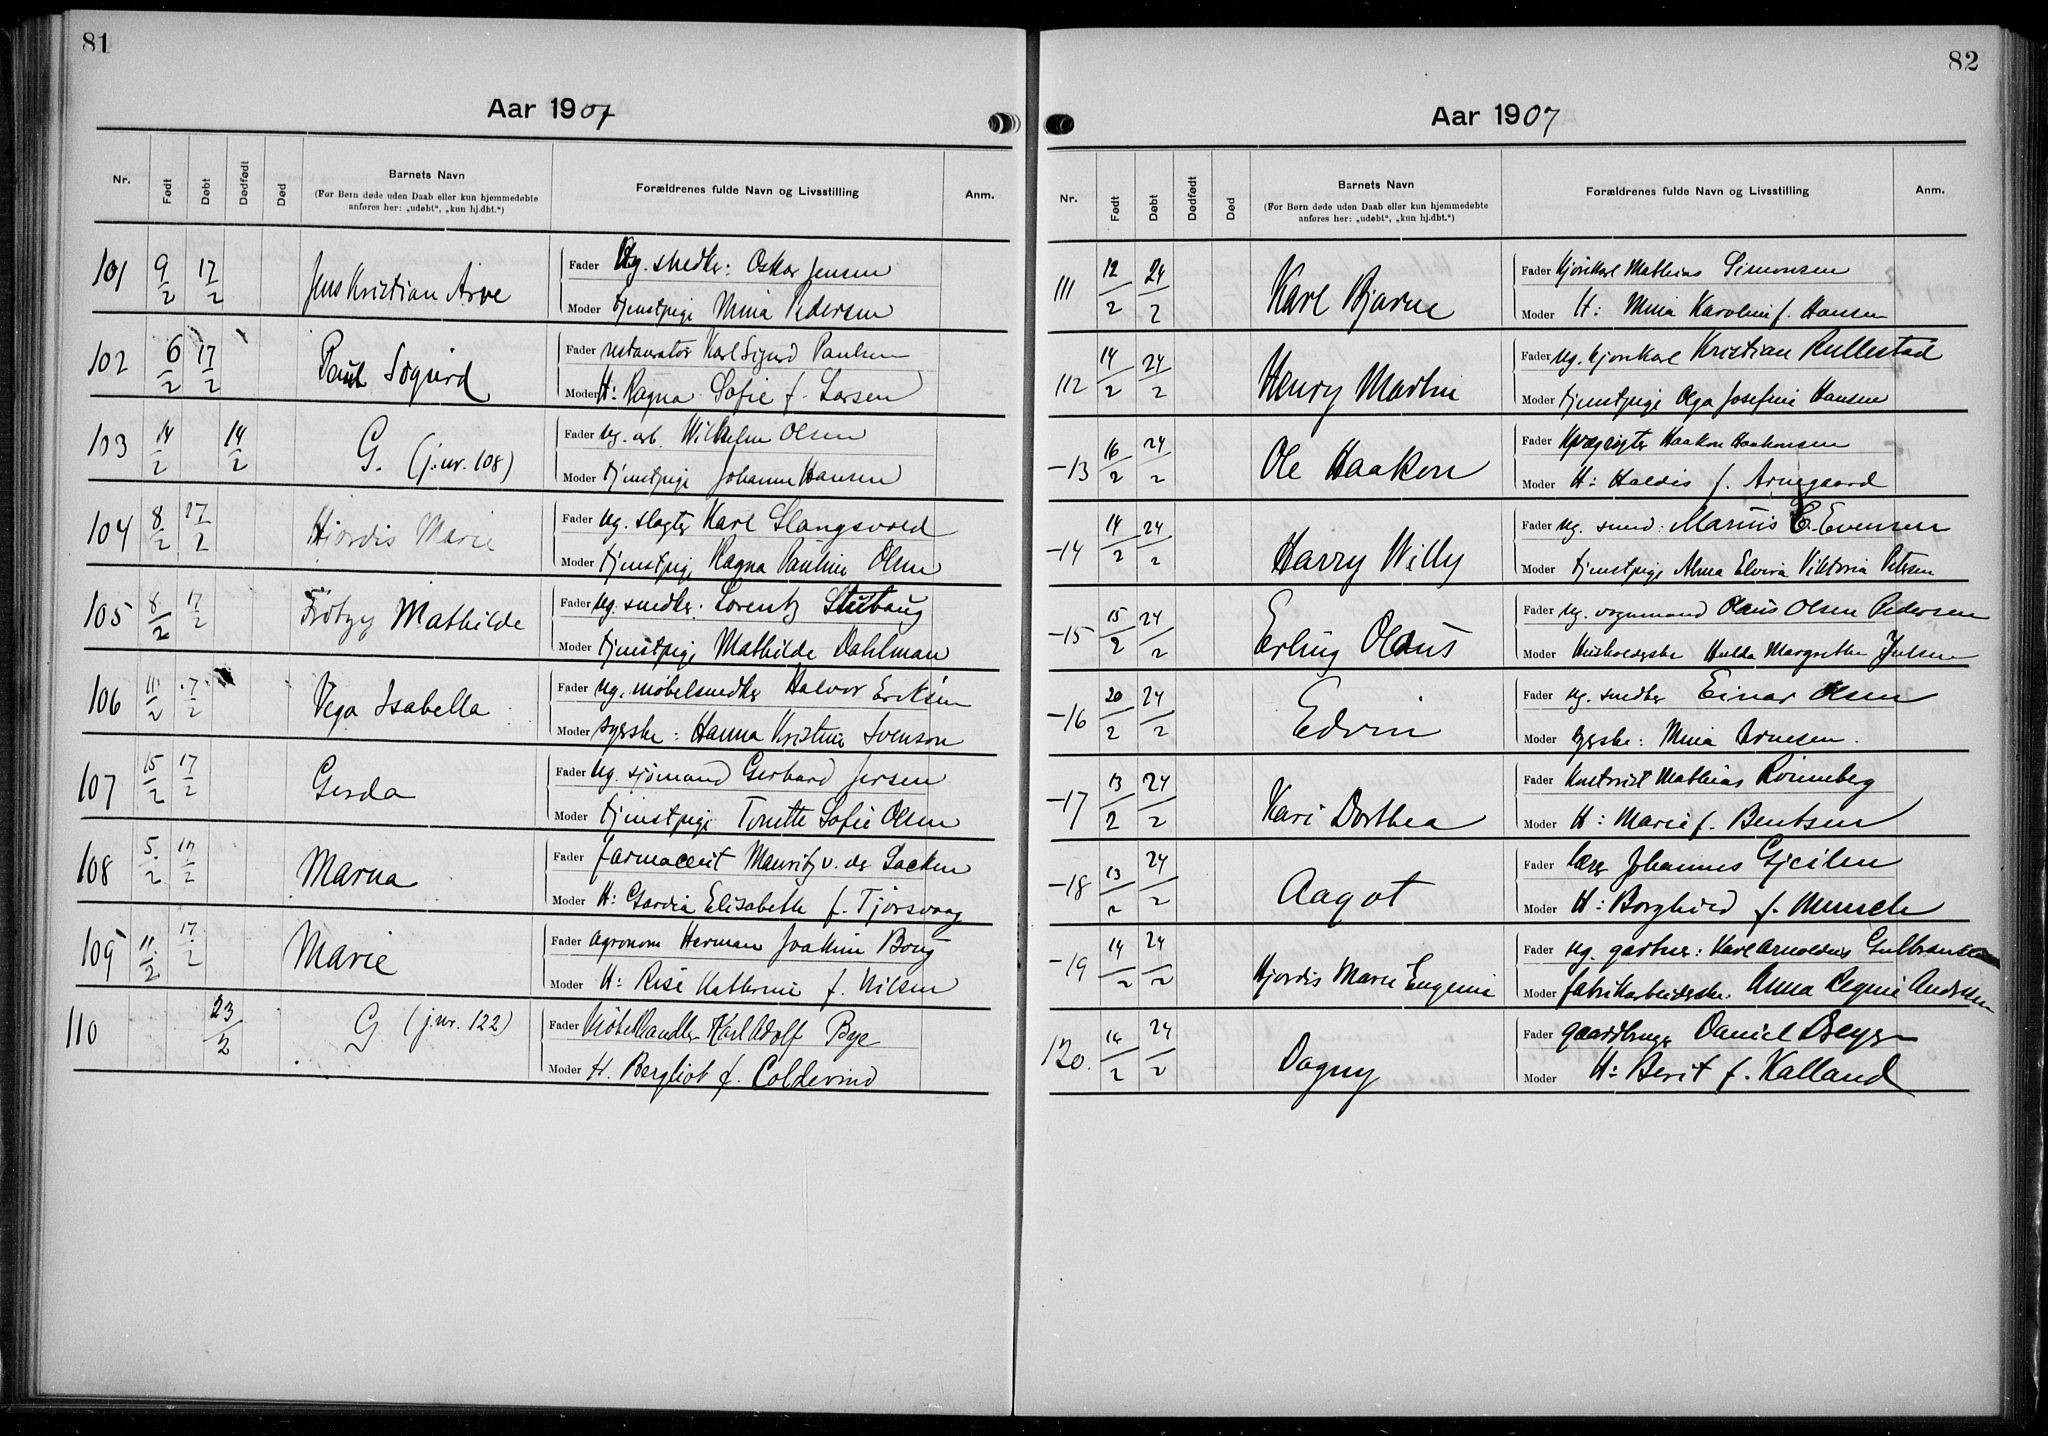 81
Aar 1907
Nr.
Født
Døbt
Dødfødt
Død
Barnets Navn
(For Børn døde uden Daab eller kun hjemmedøbte
anføres her: „udøbt“, „kun hj.dbt.“)
Forældrenes fulde Navn og Livsstilling
Anm.
101 9/2 17/2 Jens Kristian Arve
Fader Ug. snedker: Oskar Jensen
Moder tjenstpige Mina Pedersen
102 6/2 17/2 Paul Sigurd
Fader restauratør Karl Sigurd Paulsen
Moder H: Ragna Sofie f. Larsen
103 14/2 14/2 G. (j.nr. 108)
Fader Ug. arb. Wilhelm Olsen
Moder tjenstpige Johanne Hansen
104 8/2 17/2 Hjørdis Marie
Fader Ug. slagter Karl Slangsvold
Moder tjenstpige Ragna Pauline Olsen
105 8/2 17/2 Mathilde
Fader Ug. snedker. Lorentz Stubaug
Moder tjenstpige Mathilde Dahlman
106 11/2 17/2 Vega Isabella
Fader Ug. møbelsnedker Halvor Eriksen
Moder syerske: Hanna Kristine Svenson
107 15/2 17/2 Gerda
Fader Ug. sjømand Gerhard Jensen
Moder tjenstpige Tonette Sofie Olsen
108 5/2 17/2 Marna
Fader farmaceut Mauritz v. der Lacken
Moder H: Elisabeth f. Tjorsvaag
109 11/2 17/2 Marie
Fader Agronom Herman Joakim Borg
Moder H: Katherine f. Nilsen
110 23/2 G (j.nr. 122)
Fader Møbelhandler Karl Adolf Bye
Moder H. Bergliot f. Coldevind
82
Aar 1907
Nr.
Født
Døbt
Dødfødt
Død
Barnets Navn
(For Børn døde uden Daab eller kun hjemmedøbte
anføres her: „udøbt“, „kun hj.dbt.“)
Forældrenes fulde Navn og Livsstilling
Anm.
111 12/2 24/2 Karl Bjarne
Fader Kjørekarl Mathias Simonsen
Moder H: Mina Karoline f. Hansen
112 14/2 24/2 Henry Martin
Fader Ug. kjørekarl Kristian Rullestad
Moder tjenstpige Olga Josefine Hansen
-13 16/2 24/2 Ole Haakon
Fader Kvægrøgter Haakon Haakonsen
Moder H: Haldis f. Arnegaard
-14 14/2 24/2 Harry Willy
Fader Ug. smed: Marius E. Evensen
Moder tjenstpige Alma Elvira Viktoria Petersen
-15 15/2 24/2 Erling Olaus
Fader Ug. vognmand Olaus Olsen Pedersen
Moder Husholderske Hulda Margrethe Julsen
-16 20/2 24/2 Edvin
Fader Ug. snedker Einar Olsen
Moder syerske: Mina Arnesen.
-17 13/2 24/2 Kari Dorthea
Fader Kontorist Mathias Rønneberg
Moder H: Marie f. Bentsen
-18 13/2 24/2 Aagot
Fader lærer Johannes Gjeilen
Moder H: Borghild f. Munch
-19 14/2 24/2 Hjørdis Marie Eugenie
Fader Ug. gartner: Karl Arnoldus Gulbransen
Moder fabrikarbeiderske. Anna Regine Andersen
120. 14/2 24/2 Dagny
Fader gaardbruger Daniel Dseyer
Moder H: Berit f. Kalland